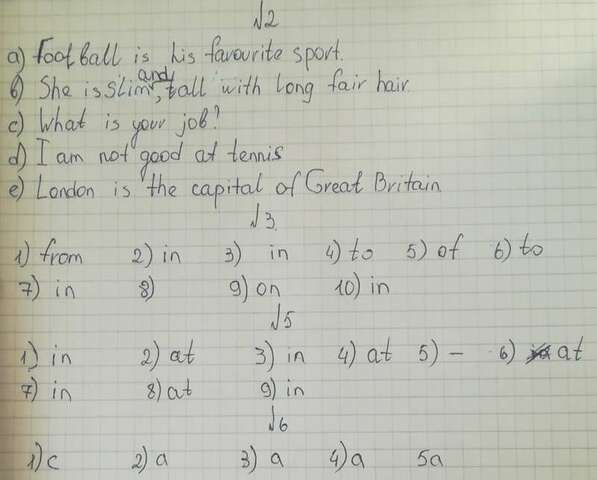 №2
a) Football is his favourite sport.
b) She is slim and, tall with long fair hair.
c) What is your job?
d) I am not good at tennis
e) London is the capital of Great Britain
№3.
1) from 2) in 3) in 4) to 5) of 6) to
7) in 8) 9) on 10) in
№5
1) in 2) at 3) in 4) at 5) – 6) at
7) in 8) at 9) in
№6
1) c 2) a 3) a 4) a 5a